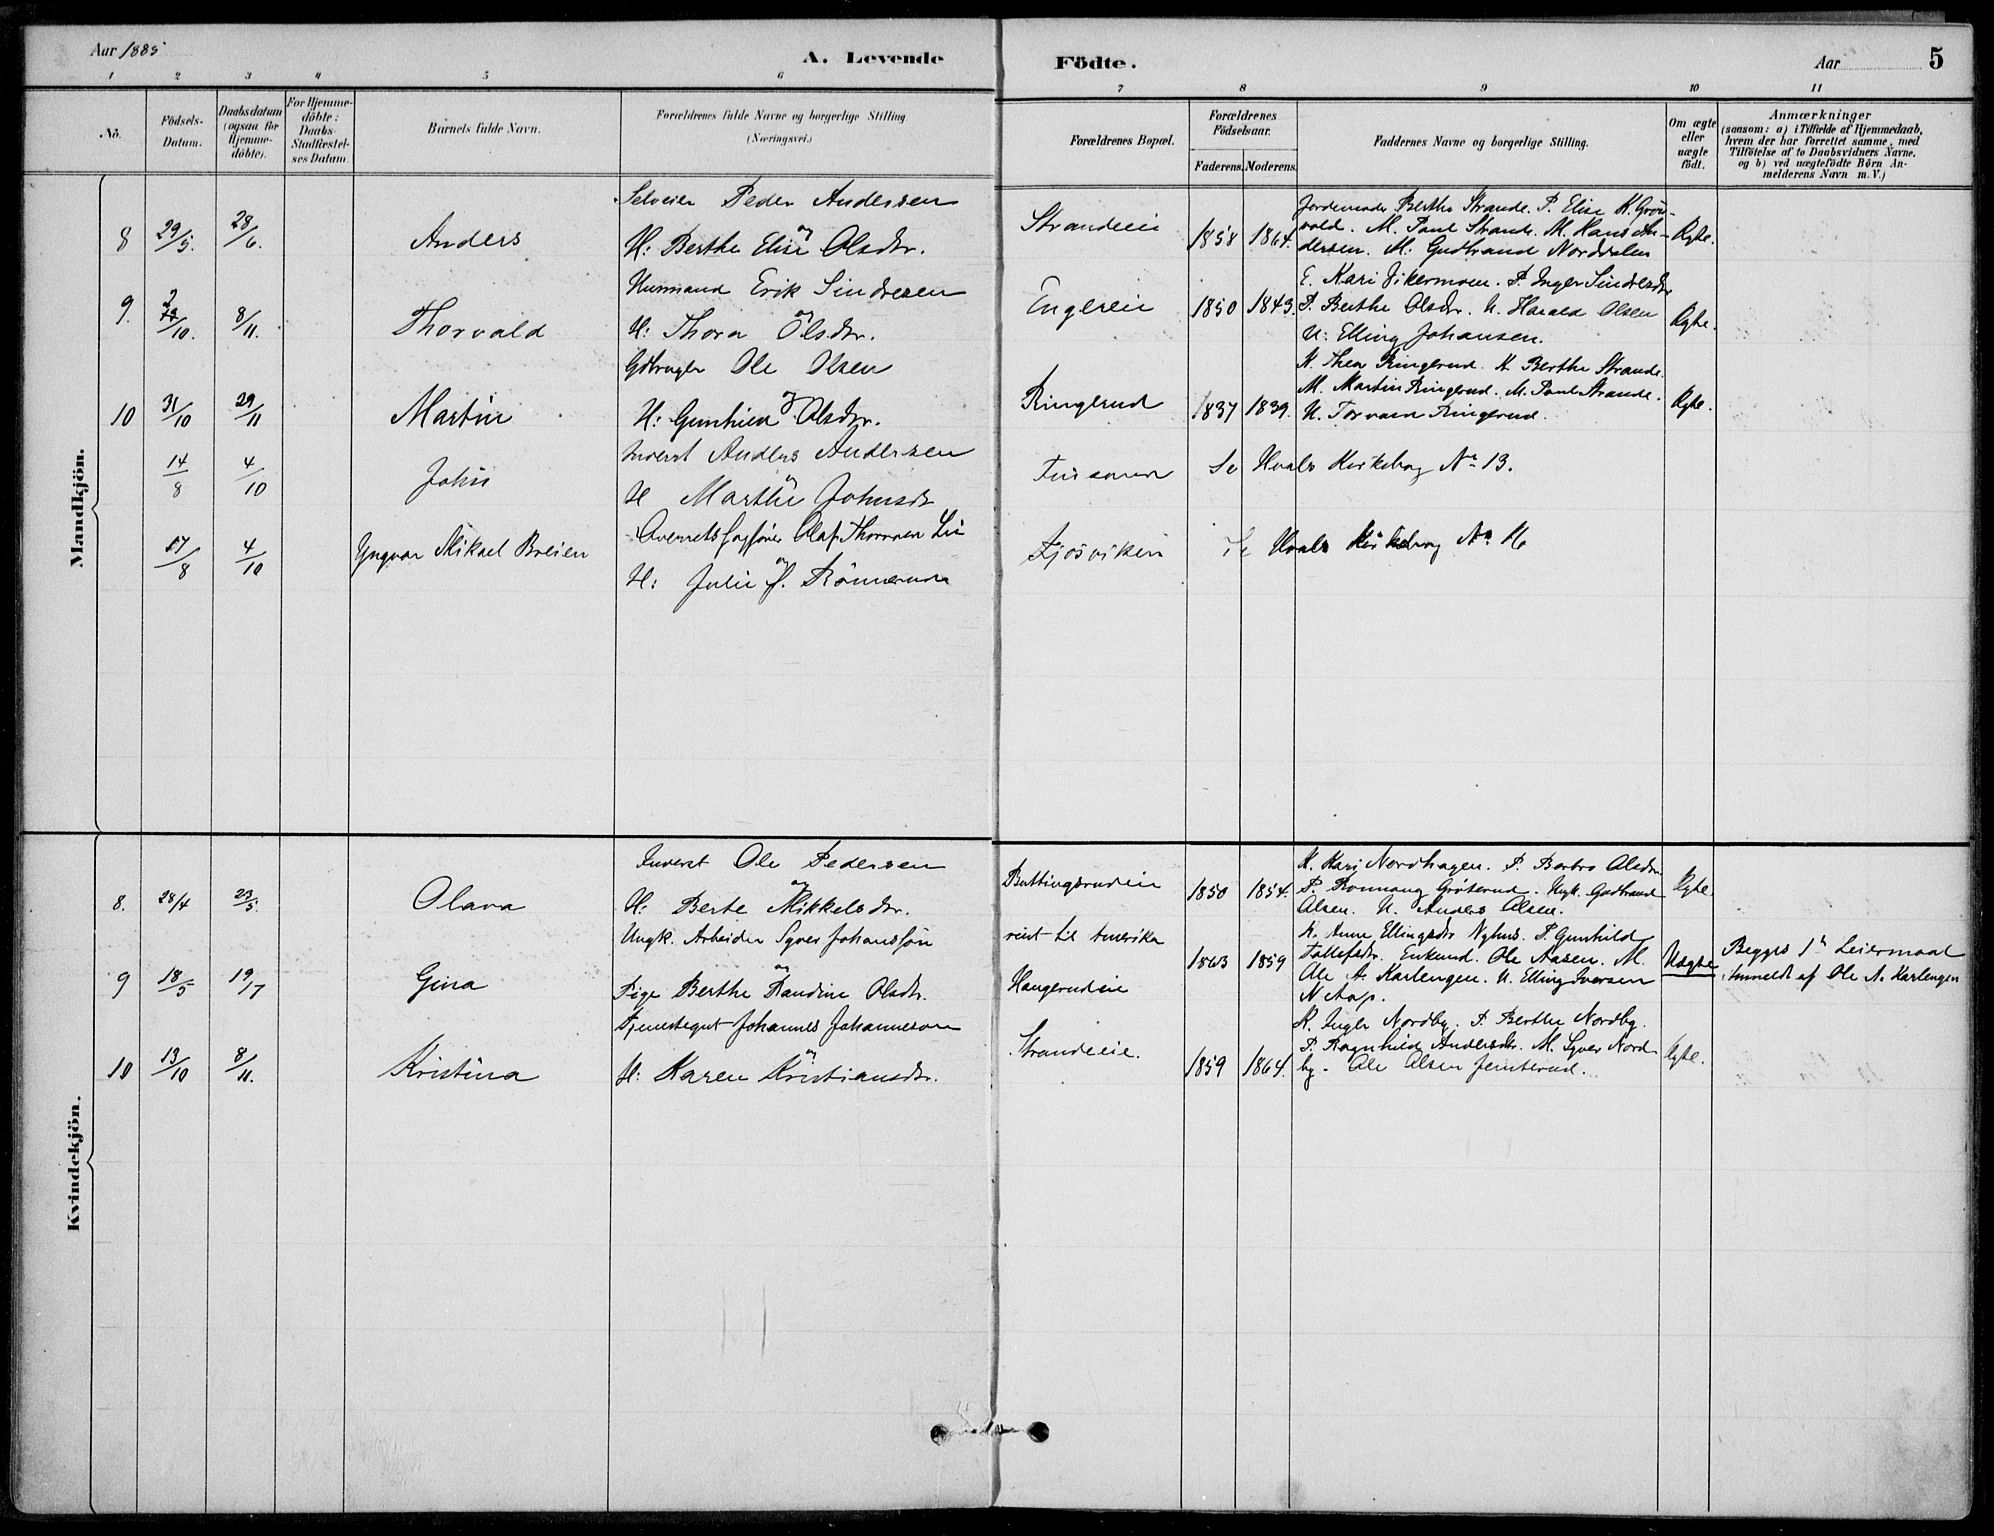 Aar 1885
A. Levende
Födte.
Aar
5
1 2 3 4 5 6 7 8 9 10 11
No.
Födsels-Datum.
Daabsdatum (ogsaa for Hjemme-döbte).
For Hjemme-döbte: Daabs-Stadfæstel-ses Datum.
Barnets fulde Navn.
Forældrenes fulde Navne og borgerlige Stilling.
(Næringsvei.)
Forældrenes Bopæl.
Forældrenes Födselsaar.
Faderens. Moderens.
Faddernes Navne og borgerlige Stilling.
Om ægte eller uægte födt.
Anmærkninger
(saasom: a) i Tilfælde af Hjemmedaab,
hvem der har forrettet samme, med
Tilföielse af to Daabsvidners Navne,
og b) ved uægtefödte Börn An-
melderens Navn m. V.)
Mandkjön.
Selveier Peder Andersen
8 29/5. 28/6. Anders
og
H: Berthe Elise Olsdtr.
Strandeie
1858 1864.
Jordemoder Berthe Strande. P. Elise K. Grön-
vold. M. Paul Strande. M. Hans An-
dersen. M: Gudbrand Norddalen
Ægte.
Husmand Erik Sindresen
9. 2/10. 8/11. Thorvald
og
H: Thora Olsdtr.
Engereie
1850 1843.
E. Kari Vikermoen. P. Inger Sindresdtr
P. Berthe Olsdtr. U. Harald Olsen
U: Elling Johansen.
Ægte.
Gdbruger Ole Olsen
10 31/10 29/11 Martin
og
H: Gunhild Olsdtr.
Ringerud
1837 1839.
K. Thea Ringerud. K. Berthe Strande.
M. Martin Ringerud. M. Paul Strande.
U. Torvald Ringerud.
Ægte.
Inderst Anders Andersen
14/8 4/10 John
og
H Marthe Johnsdtr
Se Hvals Kirkebog No 13.
17/8 4/10 Yngvar Mikael Breien
Overretssagförer Olaf Thommesen Lie
og
H: Julie J. Rönnerud
Fjösviken
Se Hvals Kirkebog No 16
Kvindekjön.
Inderst Ole Pedersen
8. 28/4 23/5. Olava
og
H: Berte Mikkelsdtr.
Buttingsrudeie
1850 1854.
K. Kari Nordhagen. P. Barbro Olsdtr
P. Ronnaug Gröterud. Ungk. Gudbrand
Olsen. U. Anders Olsen.
Ægte
Ungk. Arbeider Syver Johanssön
9 18/5 19/7 Gina
og
Pige Berthe Randine Olsdtr.
reist til Amerika
Haugerudeie
1863 1859
K. Anne Ellingsdtr Nyhus. P. Gunhild
Tollefsdtr. Enkemd. Ole Aasen. M.
Ole A. Karlengen. U. Elling Iversen
N Aas.
Uægte
Begges 1ste Leiermaal
Anmeldt af Ole A. Karlengen
Tjenestegut Johannes Johannesen
10 13/10 8/11. Kristina
og
H: Karen Kristiansdtr.
Strandeie.
1859 1864.
K. Inger Nordby. P. Berthe Nordby.
P. Ragnhild Andersdtr. M. Syver Nord-
by. Ole Olsen Jeinterud.
Ægte.